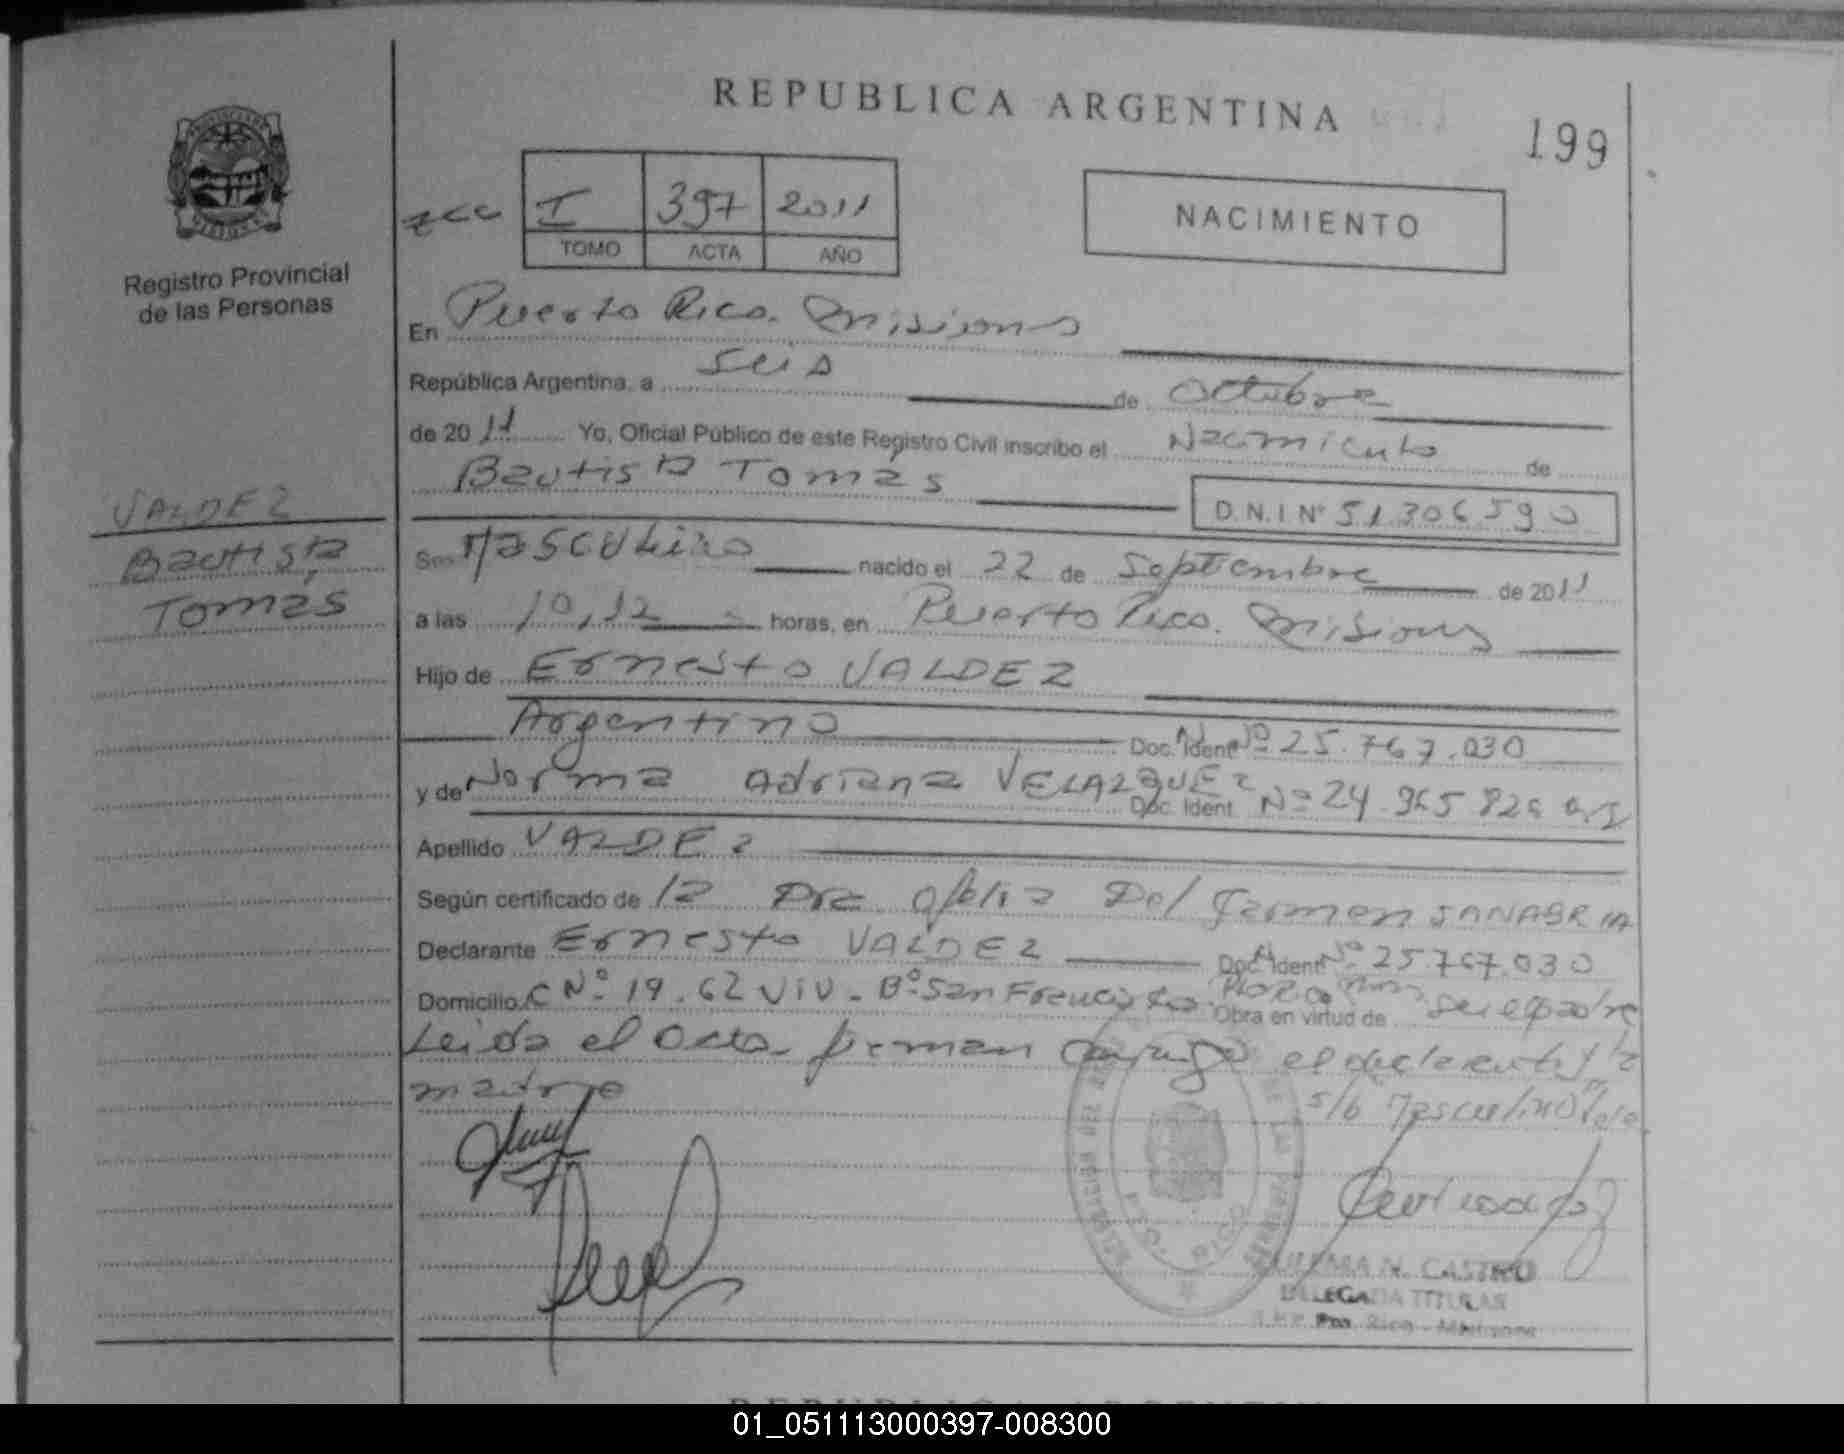 REPUBLICA ARGENTINA
199
I 397 2011
TOMO ACTA AÑO
NACIMIENTO
Registro Provincial
de las Personas
VALDEZ
Bautista
Tomas
En Puerto Rico. Misiones
República Argentina, a seis de octubre
de 2011 Yo, Oficial Público de este Registro Civil inscribo el Nacimiento de
Bautista Tomás
D.N.I Nº 51306590
Sexo Masculino nacido el 22 de Septiembre de 2011
a las 10,12 horas, en Puerto Rico. Misiones
Hijo de Ernesto VALDEZ
Argentino Doc. Ident. Nº 25.767.030
y de Norma Adriana VELAZQUEZ Doc. Ident. Nº 24.965
Apellido VALDEZ
Según certificado de la Dra Ofelia Del Carmen SANABRIA
Declarante Ernesto VALDEZ Doc. Ident. Nº 25.767.030
Domicilio C Nº 19. 62 Viv. Bº San Francisco Obra en virtud de ser el padre
Leida el acta firman el declarante y la
madre
s/b Masculino Vale
CASTRO
DELEGADA TITULAR
Pto. Rico - Misiones
REPUBLICA ARGENTINA
01_051113000397-008300